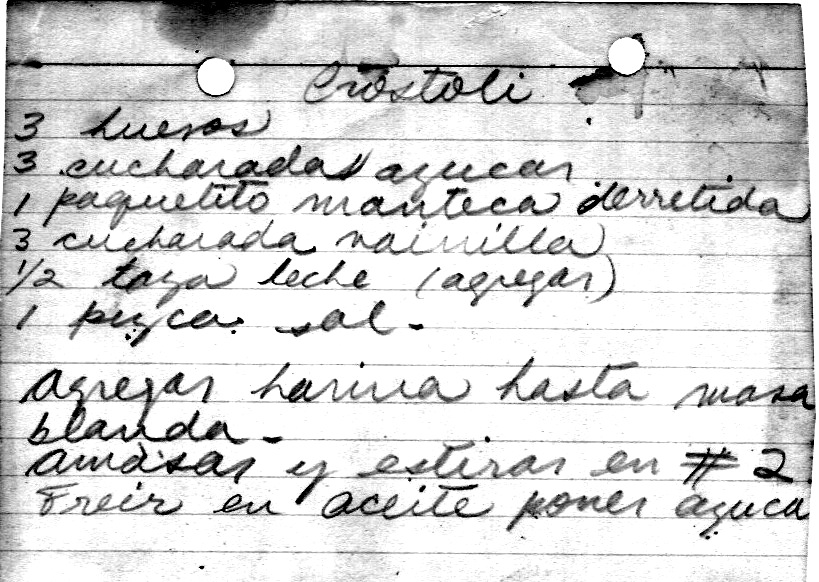 Crostoli
3 huevos
3 cucharadas azucar
1 paquetito manteca derretida
3 cucharada vainilla
1/2 taza leche (agregar)
1 pizca sal.
agregar harina hasta masa
blanda.
amasar y estirar en # 2
Freir en aceite poner azuca